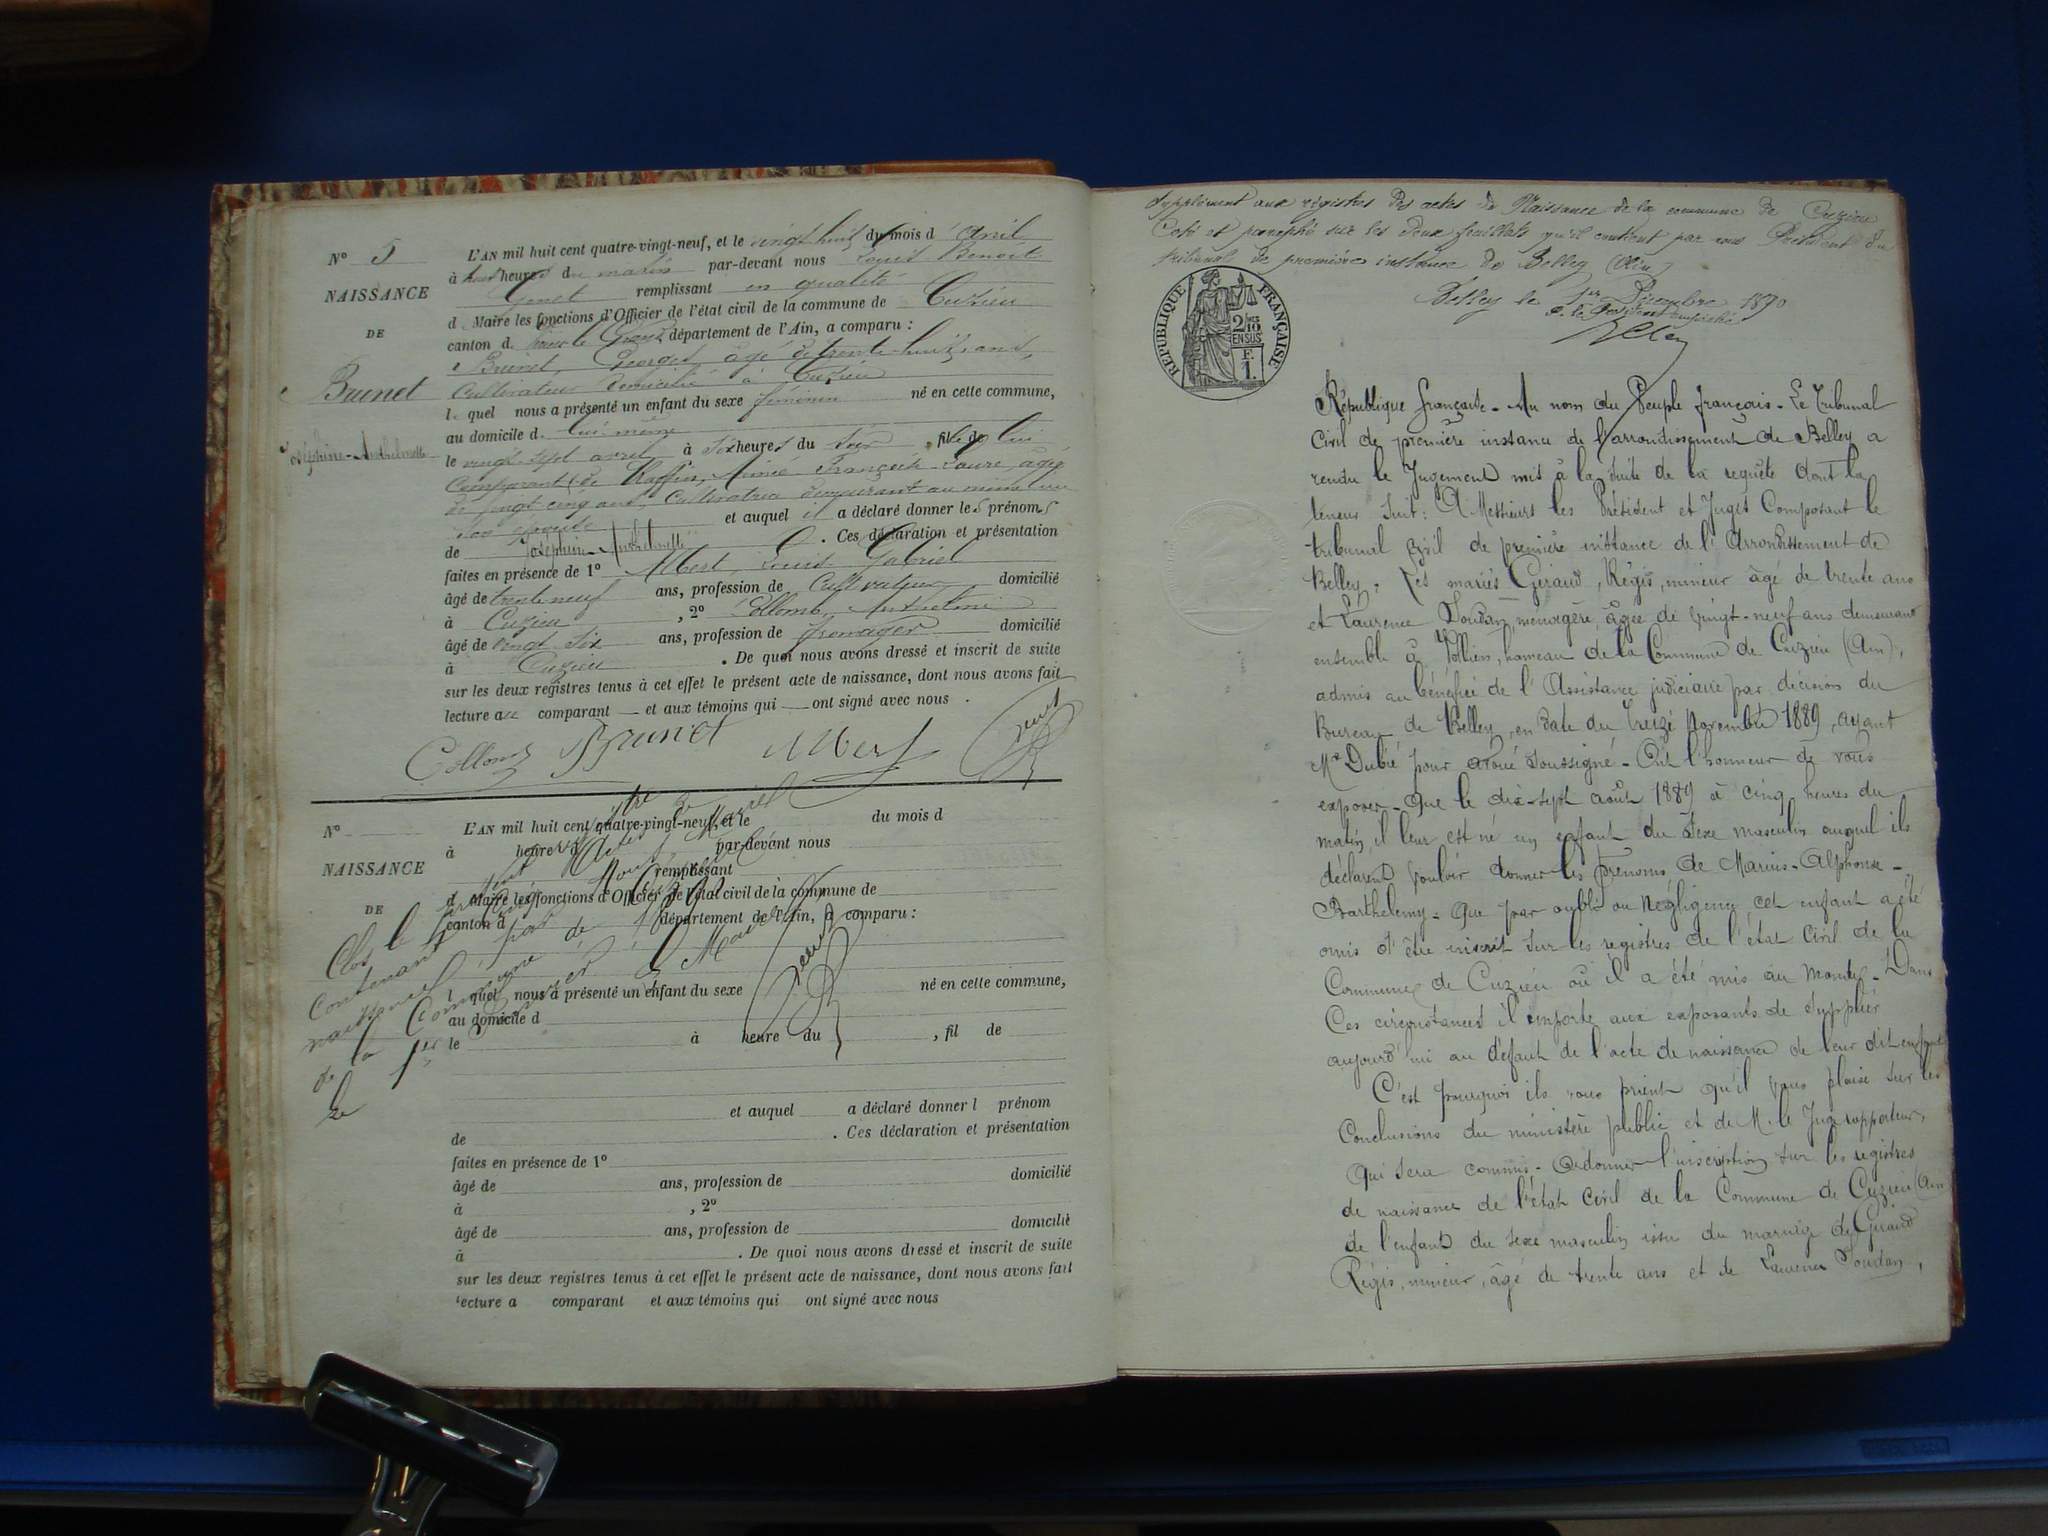 N° 5
NAISSANCE
DE
Brunet
Joséphine-Anthelmette
L'AN mil huit cent quatre-vingt-neuf, et le vingt huit du mois d'Avril
à huit heures du matin par-devant nous Louis Benoit
Genet remplissant en qualité
d Maire les fonctions d'Officier de l'état civil de la commune de Cuzieu
canton d. département de l'Ain, a comparu :
Brunet, Georges, âgé de trente-huit ans,
Cultivateur domicilié à Cuzieu
lequel nous a présenté un enfant du sexe féminin né en cette commune,
au domicile d. lui même
le vingt-sept avril à six heures du soir, fille de lui
comparant et de Raffin, Aimée Françoise Laure, âgée
de vingt cinq ans, Cultivatrice demeurant au même lieu
son épouse et auquel il a déclaré donner les prénoms
de Joséphine-Anthelmette. Ces déclaration et présentation
faites en présence de 1° Albert, Louis Gabriel
âgé de trente neuf ans, profession de Cultivateur domicilié
à Cuzieu, 2° Collomb, Anthelme
âgé de vingt six ans, profession de fromager domicilié
à Cuzieu. De quoi nous avons dressé et inscrit de suite
sur les deux registres tenus à cet effet le présent acte de naissance, dont nous avons fait
lecture au comparant — et aux témoins qui — ont signé avec nous.
Collomb Brunet Albert Genet
N°
NAISSANCE
DE
L'AN mil huit cent quatre-vingt-neuf, et le du mois d
à heure d par-devant nous
remplissant
d Maire les fonctions d'Officier de l'état civil de la commune de
canton d département de l'Ain, a comparu :
l quel nous a présenté un enfant du sexe né en cette commune,
au domicile d
le à heure du , fil de
et auquel a déclaré donner l prénom
de . Ces déclaration et présentation
faites en présence de 1°
âgé de ans, profession de domicilié
à , 2°
âgé de ans, profession de domicilié
à . De quoi nous avons dressé et inscrit de suite
sur les deux registres tenus à cet effet le présent acte de naissance, dont nous avons fait
lecture a comparant et aux témoins qui ont signé avec nous
Clos le présent registre
contenant cinq Actes de
naissance par Nous Maire
de la Commune de Cuzieu
le 1er Janvier
Le Maire
Genet
Supplément aux registres des actes de Naissance de la commune de Cuzieu
Coté et paraphé sur les deux feuillets qu'il contient par nous Président du
tribunal de première instance de Belley (Ain)
Belley le 1er Décembre 1890
P. le Président empêché
REPUBLIQUE FRANÇAISE
2/10
EN SUS
F.
1.
République française - Au nom du Peuple français - Le Tribunal
Civil de première instance de l'arrondissement de Belley a
rendu le Jugement mis à la suite de la requête dont la
teneur suit : A Messieurs les Président et Juges Composant le
tribunal Civil de première instance de l'Arrondissement de
Belley. Les mariés Giraud, Régis, mineur âgé de trente ans
et Laurence Soudan, ménagère, âgée de vingt-neuf ans demeurant
ensemble à Vollien, hameau de la Commune de Cuzieu (Ain),
admis au bénéfice de l'Assistance judiciaire par décision du
Bureau de Belley, en date du treize Novembre 1889, ayant
Me Dubié pour avoué soussigné - Ont l'honneur de vous
exposer - Que le dix-sept août 1889 à cinq heures du
matin, il leur est né un enfant du sexe masculin auquel ils
déclarent vouloir donner les prénoms de Marius-Alphonse-
Barthelemy - Que par oubli ou négligence cet enfant a été
omis d'être inscrit sur les registres de l'état Civil de la
Commune de Cuzieu où il a été mis au monde - Dans
Ces circonstances il importe aux exposants de suppléer
aujourd'hui au défaut de l'acte de naissance de leur dit enfant
C'est pourquoi ils vous prient qu'il vous plaise sur les
Conclusions du ministère public et de M. le Juge rapporteur,
Qui sera commis - Ordonner l'inscription sur les registres
de naissance de l'état Civil de la Commune de Cuzieu (Ain)
de l'enfant du sexe masculin issu du mariage de Giraud
Régis, mineur, âgé de trente ans et de Laurence Soudan,